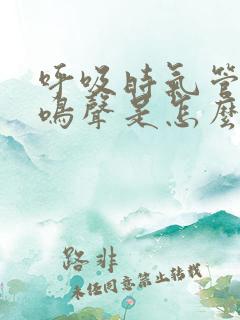 呼吸時氣管
鳴聲是怎麼
路非
未经同意禁止转载